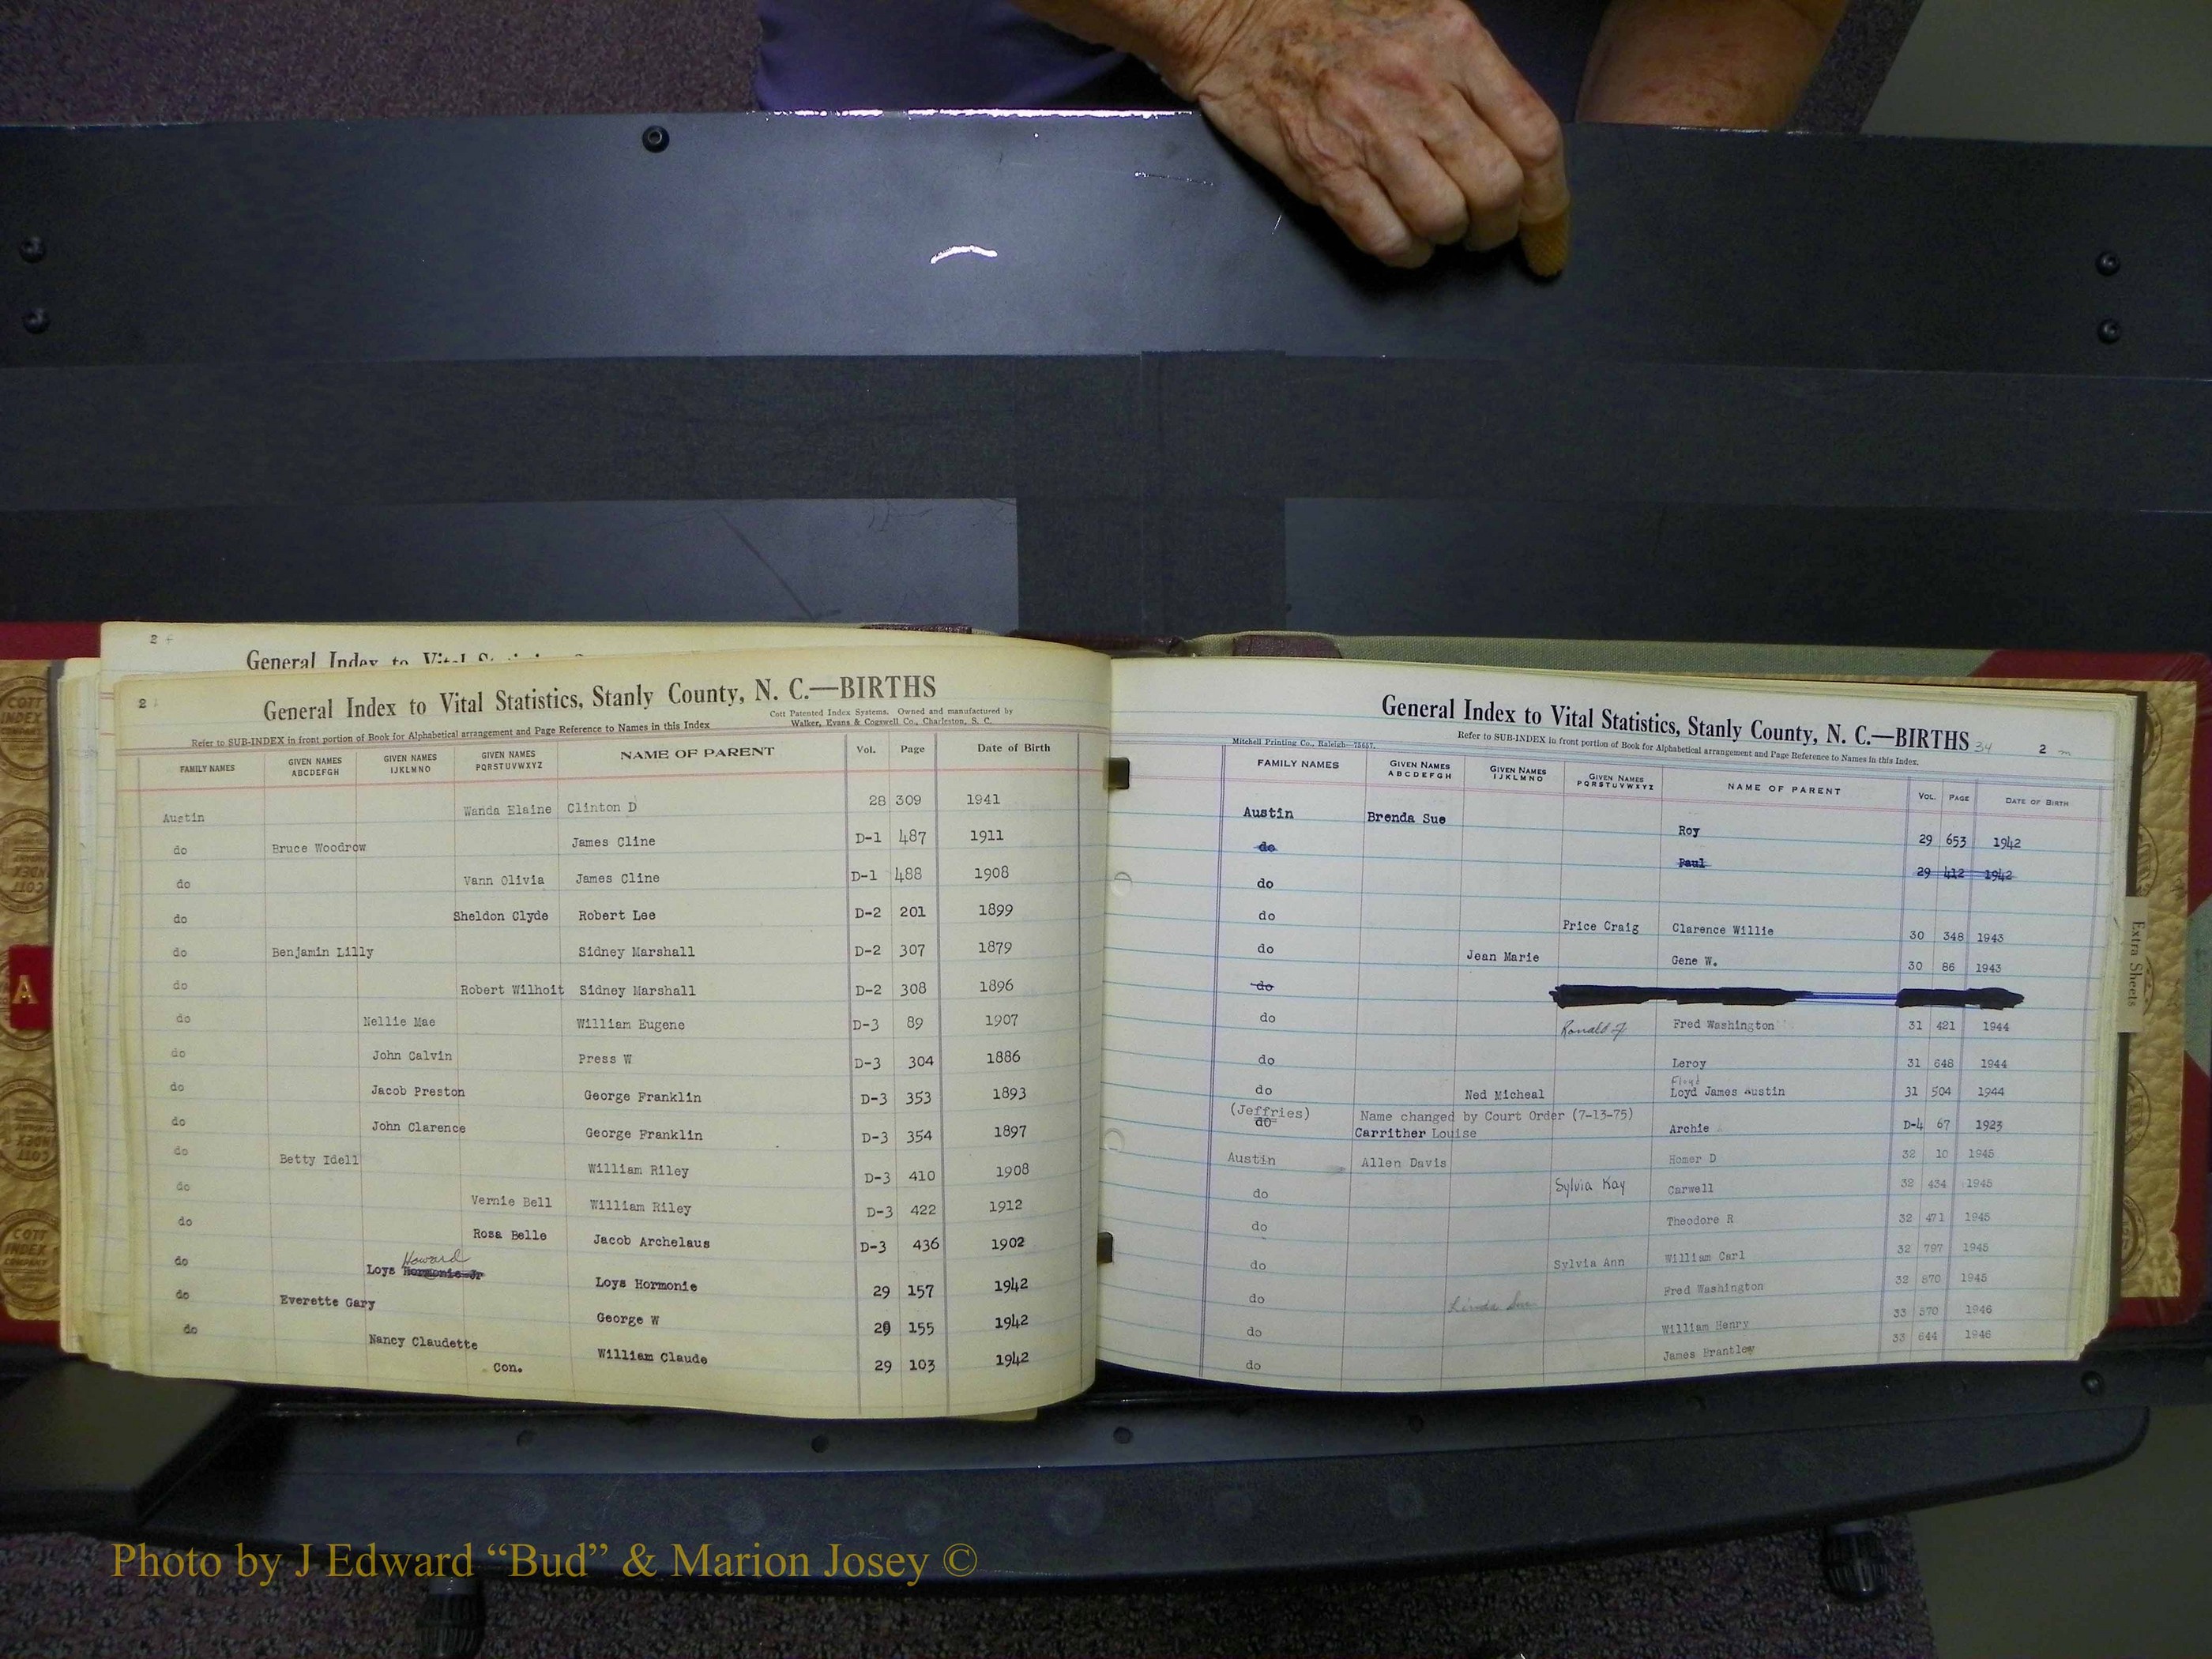 2
General Index to Vital Statistics
2
General Index to Vital Statistics, Stanly County, N. C.—BIRTHS
Cott Patented Index Systems, Owned and manufactured by
Walker, Evans & Cogswell Co., Charleston, S. C.
Refer to SUB-INDEX in front portion of Book for Alphabetical arrangement and Page Reference to Names in this Index
FAMILY NAMES GIVEN NAMES ABCDEFGH GIVEN NAMES IJKLMNO GIVEN NAMES PQRSTUVWXYZ NAME OF PARENT Vol. Page Date of Birth
Austin Wanda Elaine Clinton D 28 309 1941
do Bruce Woodrow James Cline D-1 487 1911
do Vann Olivia James Cline D-1 488 1908
do Sheldon Clyde Robert Lee D-2 201 1899
do Benjamin Lilly Sidney Marshall D-2 307 1879
do Robert Wilhoit Sidney Marshall D-2 308 1896
do Nellie Mae William Eugene D-3 89 1907
do John Calvin Press W D-3 304 1886
do Jacob Preston George Franklin D-3 353 1893
do John Clarence George Franklin D-3 354 1897
do Betty Idell William Riley D-3 410 1908
do Vernie Bell William Riley D-3 422 1912
do Rosa Belle Jacob Archelaus D-3 436 1902
Howard
do Loys Hormonie Jr Loys Hormonie 29 157 1942
do Everette Gary George W 29 155 1942
do Nancy Claudette William Claude 29 103 1942
Con.
A
General Index to Vital Statistics, Stanly County, N. C.—BIRTHS 34 2
Mitchell Printing Co., Raleigh—75657.
Refer to SUB-INDEX in front portion of Book for Alphabetical arrangement and Page Reference to Names in this Index.
FAMILY NAMES GIVEN NAMES ABCDEFGH GIVEN NAMES IJKLMNO GIVEN NAMES PQRSTUVWXYZ NAME OF PARENT VOL. PAGE DATE OF BIRTH
Austin Brenda Sue Roy 29 653 1942
do Paul 29 412 1942
do
do Price Craig Clarence Willie 30 348 1943
do Jean Marie Gene W. 30 86 1943
do
do Ronald Fred Washington 31 421 1944
do Leroy 31 648 1944
Floyd
do Ned Micheal Loyd James Austin 31 504 1944
(Jeffries) Name changed by Court Order (7-13-75)
do Carrither Louise Archie D-4 67 1923
Austin Allen Davis Homer D 32 10 1945
do Sylvia Kay Carwell 32 434 1945
do Theodore R 32 471 1945
do Sylvia Ann William Carl 32 797 1945
do Linda Sue Fred Washington 32 870 1945
do William Henry 33 570 1946
do James Brantley 33 644 1946
Extra Sheets
COTT INDEX COMPANY
Photo by J Edward “Bud” & Marion Josey ©